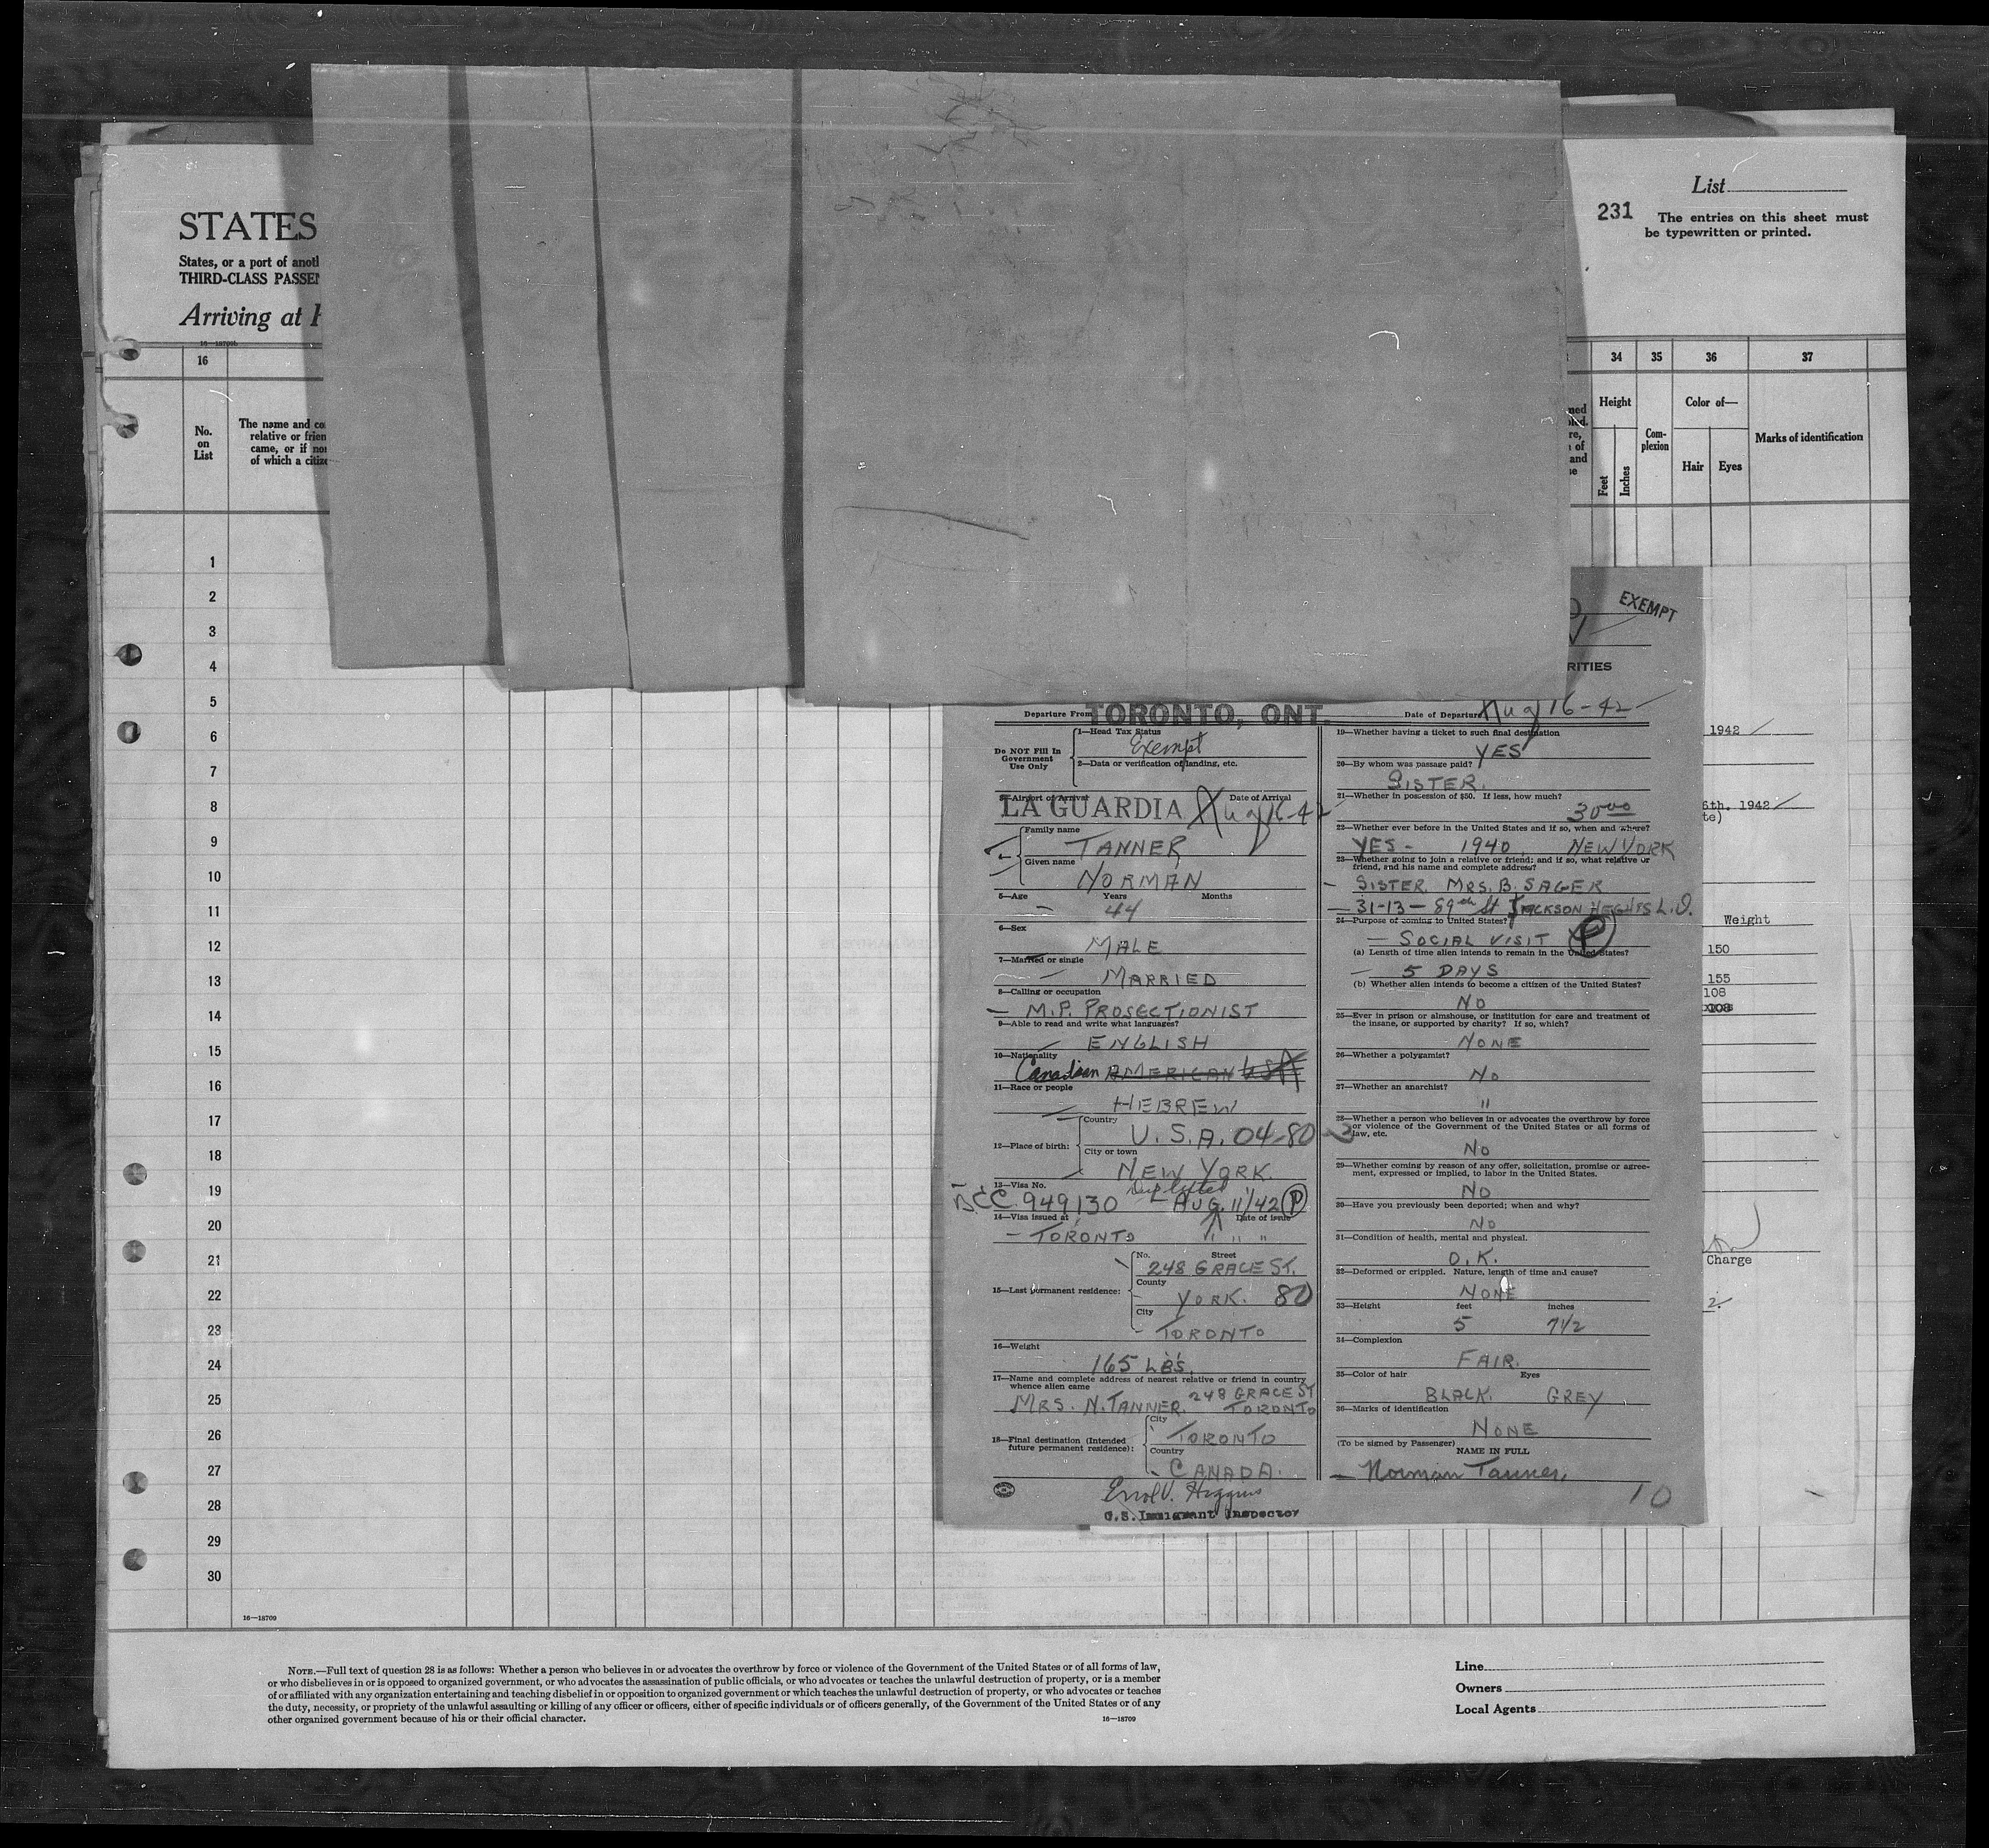 STATES
States, or a port of anoth
THIRD-CLASS PASSEN
Arriving at
List
231
The entries on this sheet must
be typewritten or printed.
16—18709b
16
34 35 36 37
No.
on
List
The name and co
relative or frien
came, or if no
of which a citiz
Height
Feet
Inches
Com-
plexion
Color of—
Hair Eyes
Marks of identification
1
2
3
4
5
6
7
8
9
10
11
12
13
14
15
16
17
18
19
20
21
22
23
24
25
26
27
28
29
30
16—18709
EXEMPT
RITIES
Departure From TORONTO, ONT.
Date of Departure Aug 16-42
Do NOT Fill In
Government
Use Only
1—Head Tax Status
Exempt
2—Data or verification of landing, etc.
3—Airport of Arrival Date of Arrival
LA GUARDIA Aug 16-42
Family name
TANNER
Given name
NORMAN
5—Age Years Months
44
6—Sex
MALE
7—Married or single
MARRIED
8—Calling or occupation
M.P. PROSECTIONIST
9—Able to read and write what languages?
ENGLISH
10—Nationality
Canadian AMERICAN USA
11—Race or people
HEBREW
12—Place of birth:
Country
U.S.A. 04-80
City or town
NEW YORK.
13—Visa No.
949130 AUG. 11/42 P
14—Visa issued at Date of issue
TORONTO " " "
15—Last permanent residence:
No. Street
248 GRACE ST.
County
YORK. 80
City
TORONTO
16—Weight
165 LBS.
17—Name and complete address of nearest relative or friend in country
whence alien came
MRS. N. TANNER. 248 GRACE ST
TORONTO
18—Final destination (Intended
future permanent residence):
City
TORONTO
Country
CANADA.
Errol V. Higgins
U.S. Immigrant Inspector
19—Whether having a ticket to such final destination
YES
20—By whom was passage paid?
SISTER.
21—Whether in possession of $50. If less, how much?
30.00
22—Whether ever before in the United States and if so, when and where?
YES - 1940, NEW YORK
23—Whether going to join a relative or friend; and if so, what relative or
friend, and his name and complete address?
SISTER. MRS. B. SAGER
31-13 - 89th St JACKSON HEGHTS L.I.
24—Purpose of coming to United States?
SOCIAL VISIT P
(a) Length of time alien intends to remain in the United States?
5 DAYS
(b) Whether alien intends to become a citizen of the United States?
NO
25—Ever in prison or almshouse, or institution for care and treatment of
the insane, or supported by charity? If so, which?
NONE
26—Whether a polygamist?
No
27—Whether an anarchist?
"
28—Whether a person who believes in or advocates the overthrow by force
or violence of the Government of the United States or all forms of
law, etc.
No
29—Whether coming by reason of any offer, solicitation, promise or agree-
ment, expressed or implied, to labor in the United States.
No
30—Have you previously been deported; when and why?
No
31—Condition of health, mental and physical.
O.K.
32—Deformed or crippled. Nature, length of time and cause?
NONE
33—Height feet inches
5 7 1/2
34—Complexion
FAIR.
35—Color of hair Eyes
BLACK. GREY
36—Marks of identification
NONE
(To be signed by Passenger)
NAME IN FULL
Norman Tanner.
10
1942
6th. 1942
te)
Weight
150
155
108
108
Charge
NOTE.—Full text of question 28 is as follows: Whether a person who believes in or advocates the overthrow by force or violence of the Government of the United States or of all forms of law,
or who disbelieves in or is opposed to organized government, or who advocates the assassination of public officials, or who advocates or teaches the unlawful destruction of property, or is a member
of or affiliated with any organization entertaining and teaching disbelief in or opposition to organized government or which teaches the unlawful destruction of property, or who advocates or teaches
the duty, necessity, or propriety of the unlawful assaulting or killing of any officer or officers, either of specific individuals or of officers generally, of the Government of the United States or of any
other organized government because of his or their official character.
16—18709
Line
Owners
Local Agents